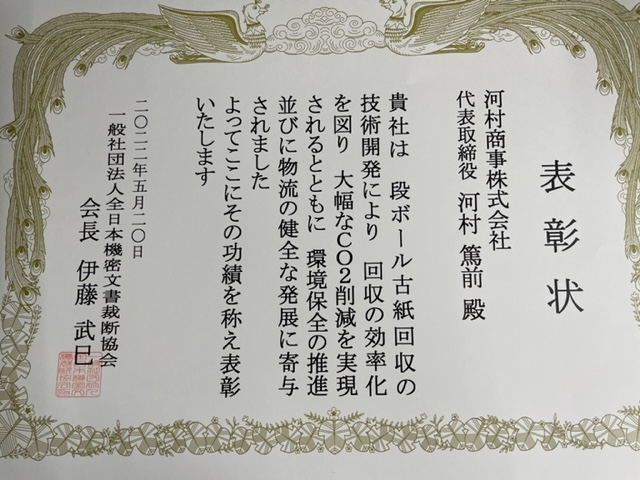 表彰状
河村商事株式会社
代表取締役 河村 篤前 殿
貴社は 段ボール古紙回収の
技術開発により 回収の効率化
を図り 大幅なCO2削減を実現
されるとともに 環境保全の推進
並びに物流の健全な発展に寄与
されました
よってここにその功績を称え表彰
いたします
二〇二二年五月二〇日
一般社団法人全日本機密文書裁断協会
会長 伊藤 武巳